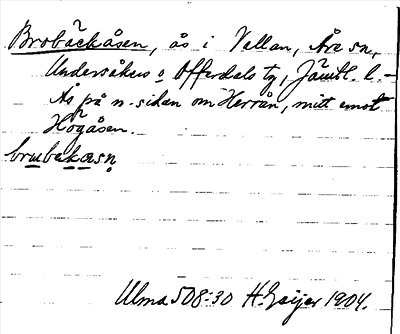 Brobäckåsen, ås i Vallan, Åre sn,
Undersåkers o Offerdals tg, Jämtl. l. –
Ås på n. sidan om Herrån, mitt emot
Högåsen.
brubekasn
Ulma 508:30 H. Geijer 1904.